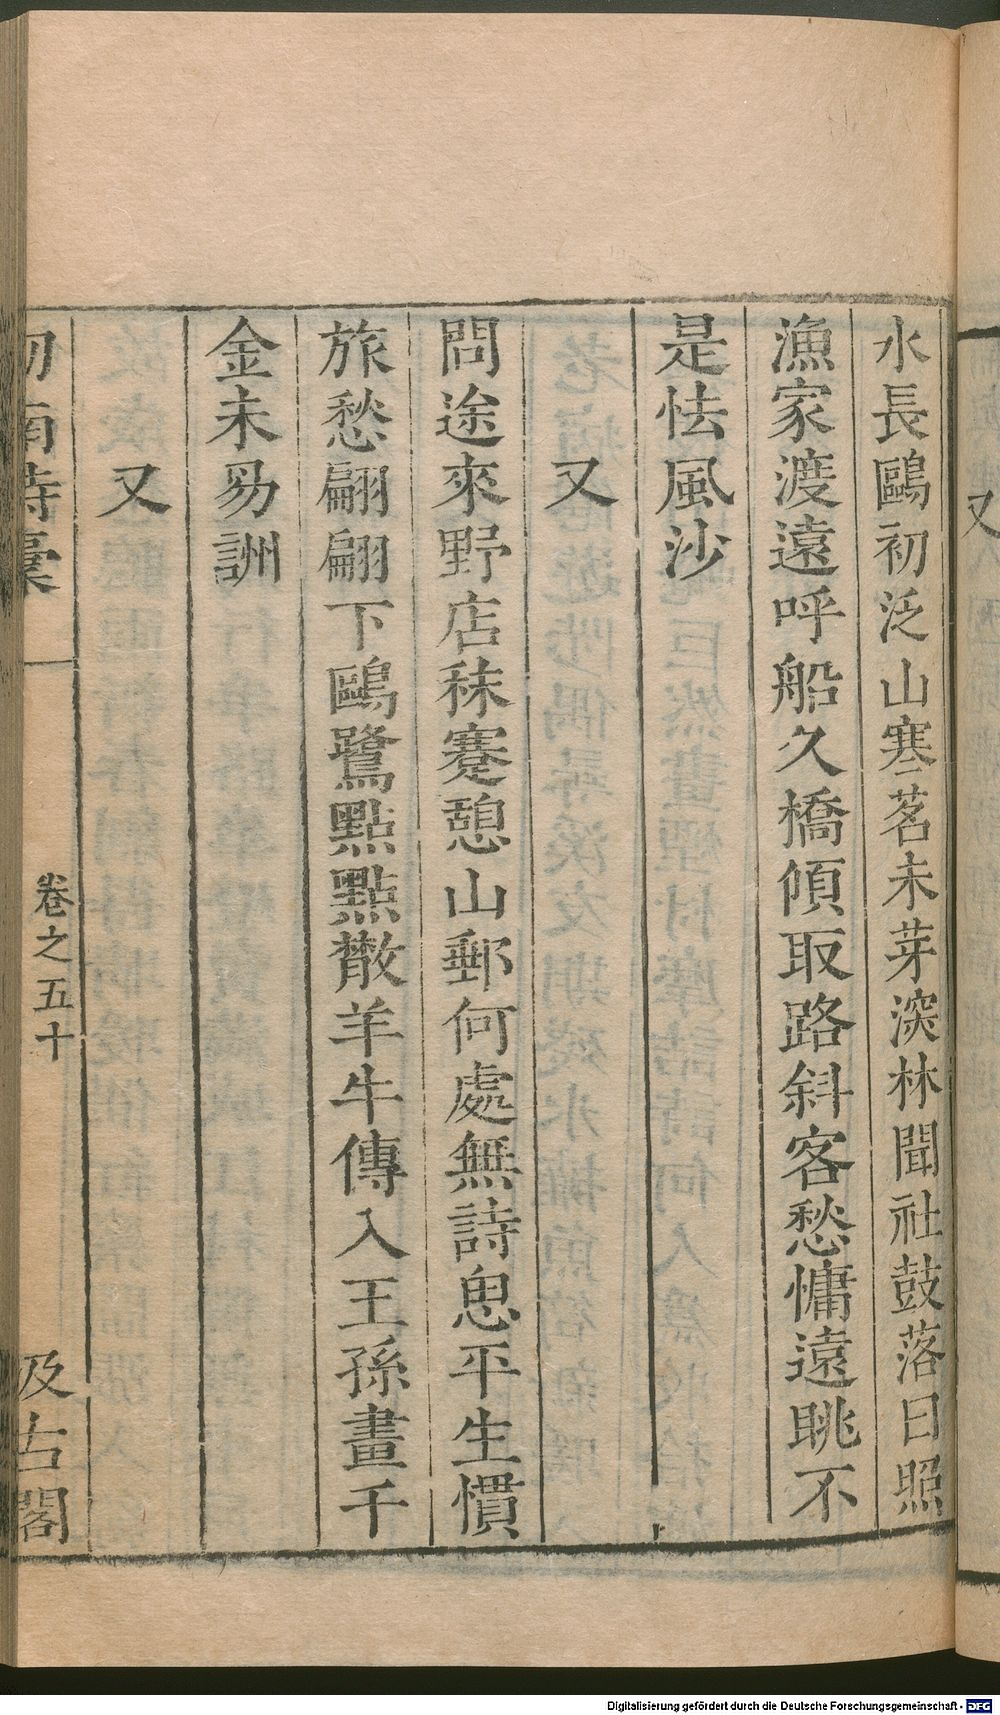 水長鷗初泛山寒茗未芽深林聞社鼓落日照
漁家渡遠呼船久橋傾取路斜客愁慵遠眺不
是怯風沙
又
問途來野店秣蹇憩山郵何處無詩思平生慣
旅愁翩翩下鷗鷺點點散羊牛傳入王孫畫千
金未易詶
又
劎南詩稾
卷之五十
汲古閣
又
Digitalisierung gefördert durch die Deutsche Forschungsgemeinschaft - DFG